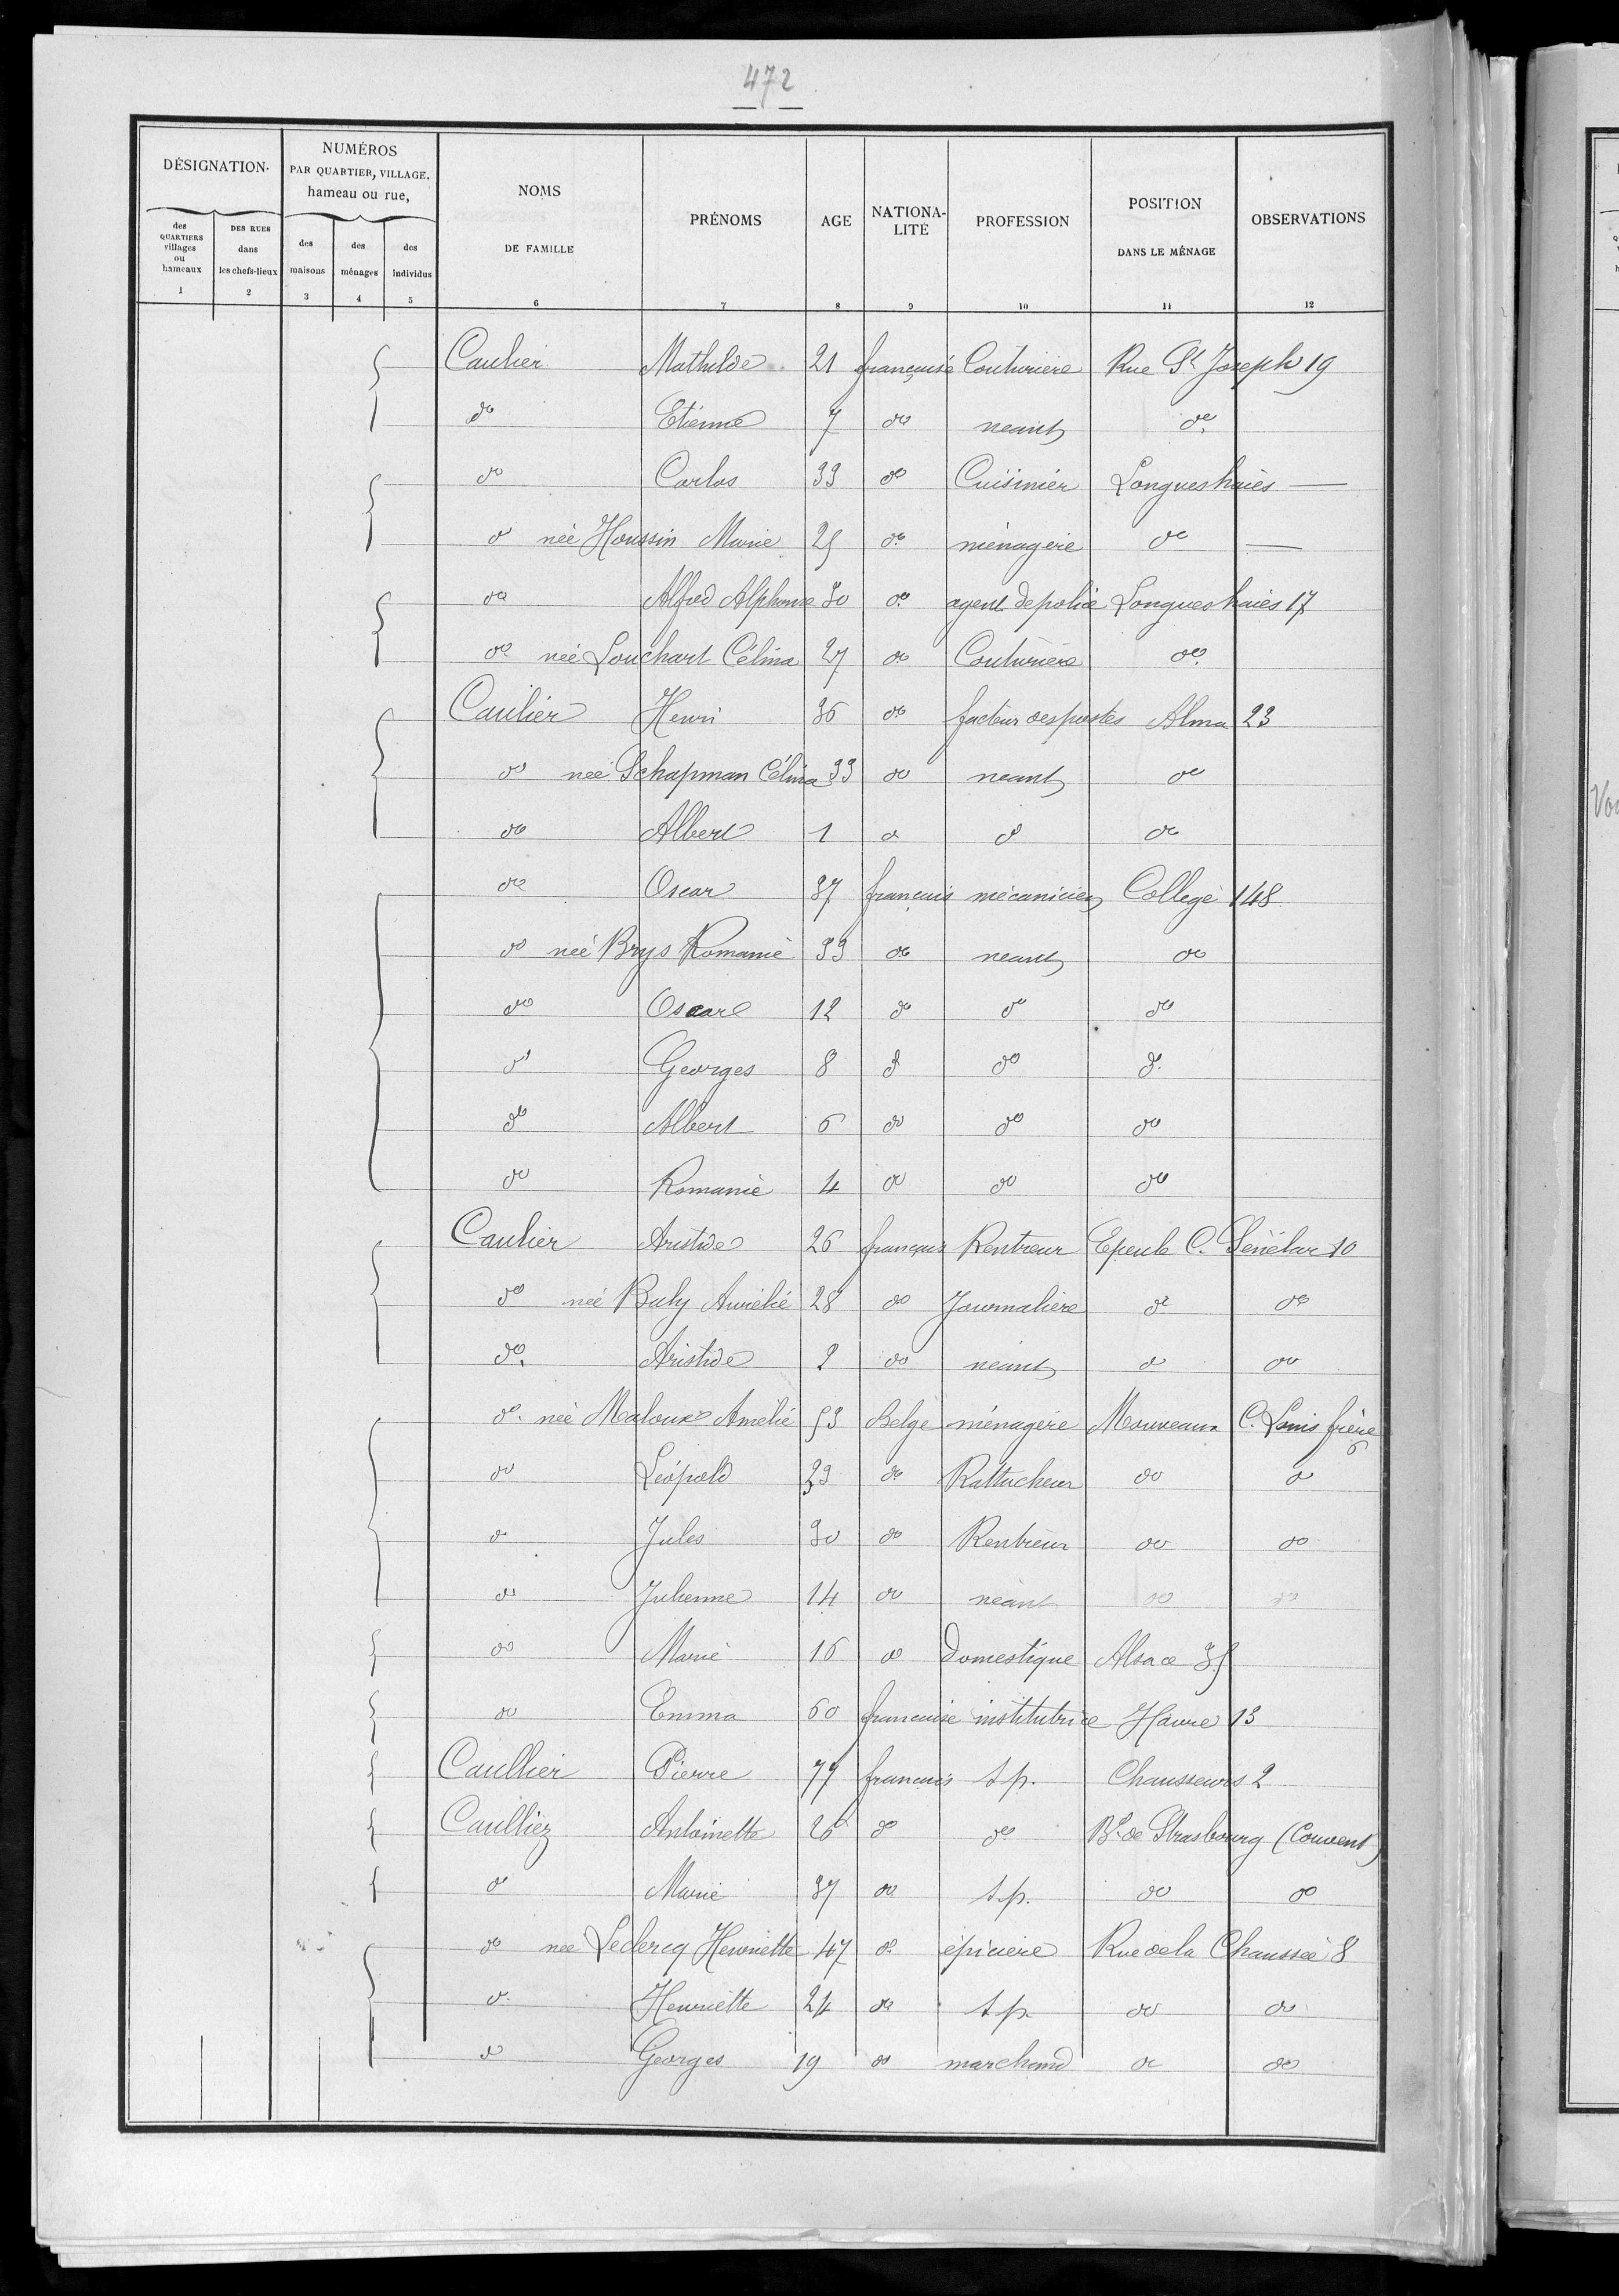 472
DÉSIGNATION. NUMÉROS PAR QUARTIER, VILLAGE, hameau ou rue, NOMS DE FAMILLE PRÉNOMS AGE NATIONALITÉ PROFESSION POSITION DANS LE MÉNAGE OBSERVATIONS
des QUARTIERS villages ou hameaux DES RUES dans les chefs-lieux des maisons des ménages des individus
1 2 3 4 5 6 7 8 9 10 11 12
Caulier Mathilde 21 française Couturière Rue St Joseph 19
do Etienne 7 do neant do
do Carlos 33 do Cuisinier Longueshaies —
do née Houssin Marie 25 do ménagère do —
do Alfred Alphonse 30 do agent de police Longueshaies 17
do née Louchart Célina 27 do Couturière do
Caulier Henri 36 do facteur des postes Alma 23
do née Schapman Célina 33 do neant do
do Albert 1 do do do
do Oscar 37 français mécanicien Collège 148
do née Brys Romanie 33 do neant do
do Oscar 12 do do do
do Georges 8 do do do
do Albert 6 do do do
do Romanie 4 do do do
Caulier Aristide 26 français Rentreur Epeule C. Sénélar 10
do née Buly Aurélie 28 do Journalière do do
do Aristide 2 do néant do do
do née Maloux Amélie 53 Belge ménagère Mouveaux C. Louis frère 6
do Léopold 23 do Rattacheur do do
do Jules 30 do Rentreur do do
do Julienne 14 do néant do do
do Marie 16 do Domestique Alsace 35
do Emma 60 française institutrice Havre 13
Caullier Pierre 77 français s.p. Chasseurs 2
Caulliez Antoinette 26 do do Bd de Strasbourg (Couvent)
do Marie 37 do s.p. do do
do née Leclercq Henriette 47 do épicière Rue de la Chaussée 8
do Henriette 24 do s.p do do
do Georges 19 do marchand do do